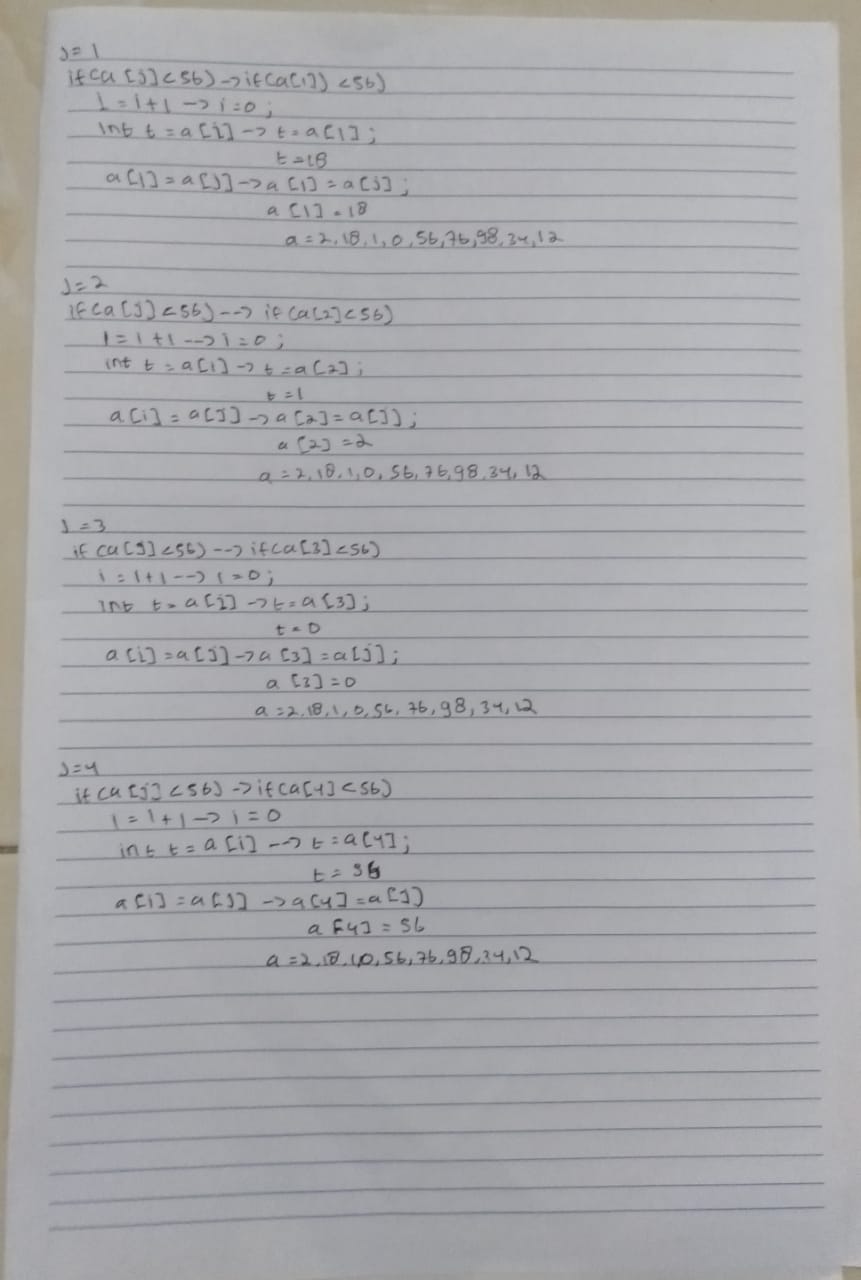 J=1
if(a[j]<56)->if(a[1])<56)
i=i+1->i=0;
int t=a[i]->t=a[1];
t=18
a[i]=a[j]->a[1]=a[j];
a[1]=18
a=2,18,1,0,56,76,98,34,12
J=2
if(a[j]<56)-->if(a[2]<56)
i=i+1-->i=0;
int t=a[i]->t=a[2];
t=1
a[i]=a[j]->a[2]=a[j];
a[2]=2
a=2,18,1,0,56,76,98,34,12
J=3
if(a[j]<56)-->if(a[3]<56)
i=i+1-->i=0;
int t=a[i]->t=a[3];
t=0
a[i]=a[j]->a[3]=a[j];
a[3]=0
a=2,18,1,0,56,76,98,34,12
J=4
if(a[j]<56)->if(a[4]<56)
i=i+1->i=0
int t=a[i]-->t=a[4];
t=56
a[i]=a[j]->a[4]=a[j]
a[4]=56
a=2,18,1,0,56,76,98,34,12